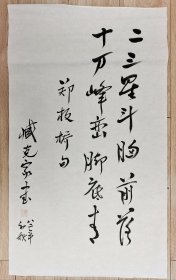 二三星斗胸前落
十万峰峦脚底青
郑板桥句
臧克家书